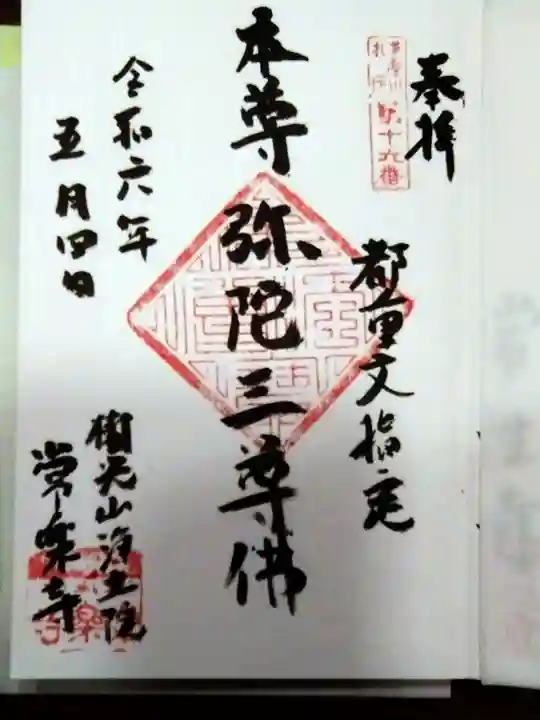 奉拝
第十九番
都重文指定
本尊 弥陀三尊佛
令和六年
五月四日
樹光山浄土院
常楽寺